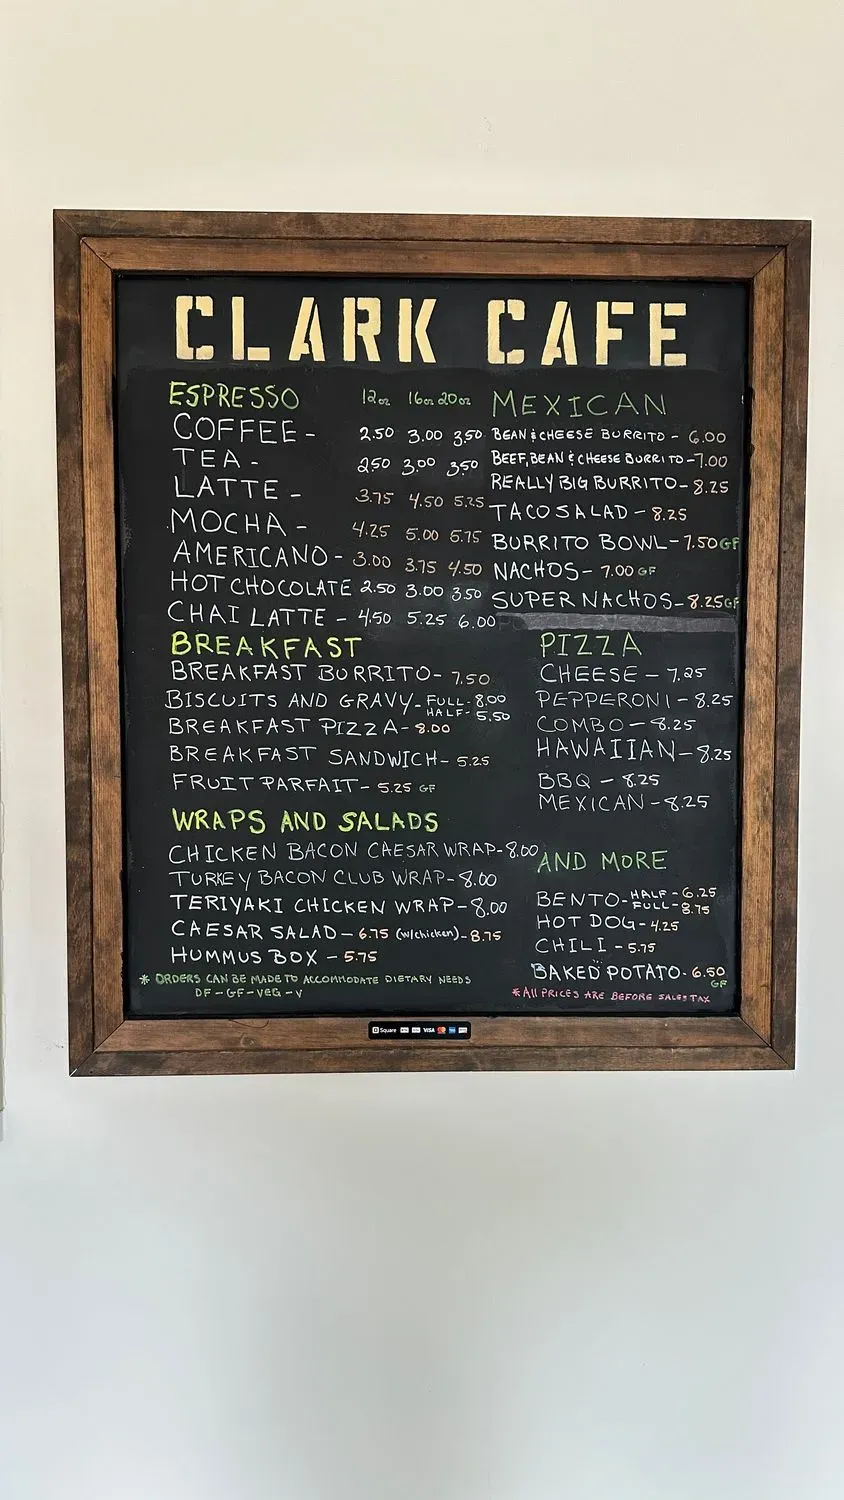 CLARK CAFE
ESPRESSO 12oz 16oz 20oz
COFFEE - 2.50 3.00 3.50
TEA - 2.50 3.00 3.50
LATTE - 3.75 4.50 5.25
MOCHA - 4.25 5.00 5.75
AMERICANO - 3.00 3.75 4.50
HOT CHOCOLATE 2.50 3.00 3.50
CHAI LATTE - 4.50 5.25 6.00
BREAKFAST
BREAKFAST BURRITO - 7.50
BISCUITS AND GRAVY - FULL - 8.00
HALF - 5.50
BREAKFAST PIZZA - 8.00
BREAKFAST SANDWICH - 5.25
FRUIT PARFAIT - 5.25 GF
WRAPS AND SALADS
CHICKEN BACON CAESAR WRAP - 8.00
TURKEY BACON CLUB WRAP - 8.00
TERIYAKI CHICKEN WRAP - 8.00
CAESAR SALAD - 6.75 (w/chicken) - 8.75
HUMMUS BOX - 5.75
* ORDERS CAN BE MADE TO ACCOMMODATE DIETARY NEEDS
DF - GF - VEG - V
MEXICAN
BEAN & CHEESE BURRITO - 6.00
BEEF, BEAN & CHEESE BURRITO - 7.00
REALLY BIG BURRITO - 8.25
TACO SALAD - 8.25
BURRITO BOWL - 7.50 GF
NACHOS - 7.00 GF
SUPER NACHOS - 8.25 GF
PIZZA
CHEESE - 7.25
PEPPERONI - 8.25
COMBO - 8.25
HAWAIIAN - 8.25
BBQ - 8.25
MEXICAN - 8.25
AND MORE
BENTO - HALF - 6.25
FULL - 8.75
HOT DOG - 4.25
CHILI - 5.75
BAKED POTATO - 6.50
GF
* All PRICES ARE BEFORE SALES TAX
Square VISA